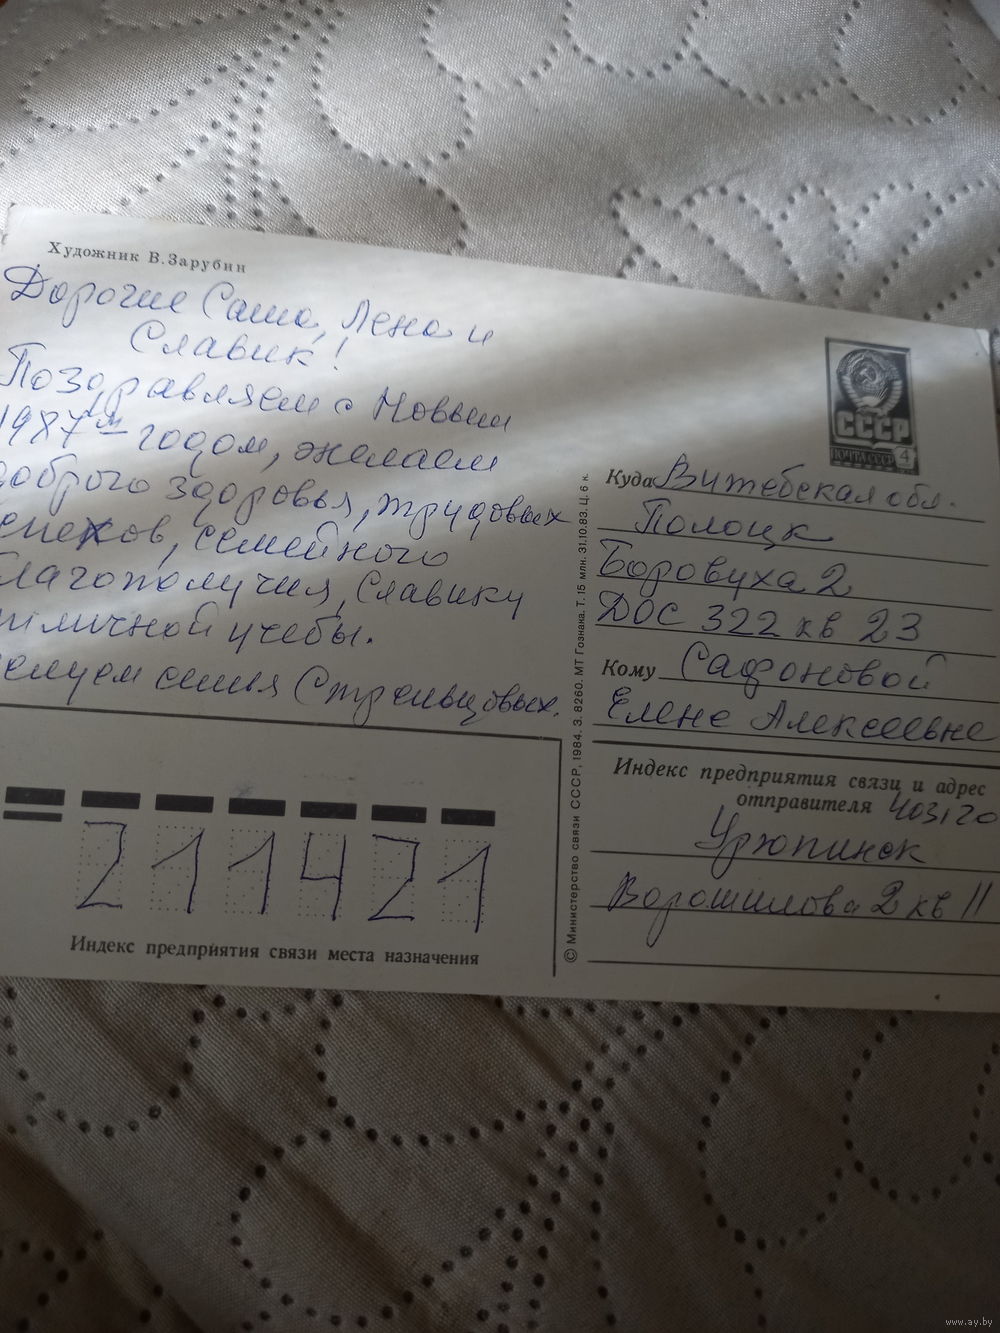 Художник В.Зарубин
Дорогие Саша, Лена и
Славик!
Поздравляем с Новым
1987м годом, желаем
доброго здоровья, трудовых
спехов, семейного
лагополучия, Славику
тличной учебы.
елуем семья Стрельцовых.
Индекс предприятия связи места назначения
211421
© Министерство связи СССР, 1984. З. 8260. МТ Гознака. Т. 15 млн. 31.10.83. Ц. 6 к.
СССР
ПОЧТА СССР 4
Куда Витебская обл.
Полоцк
Боровуха 2
ДОС 322 кв 23
Кому Сафоновой
Елене Алексеевне
Индекс предприятия связи и адрес
отправителя 403120
Урюпинск
Ворошилова 2 кв 11
www.ay.by